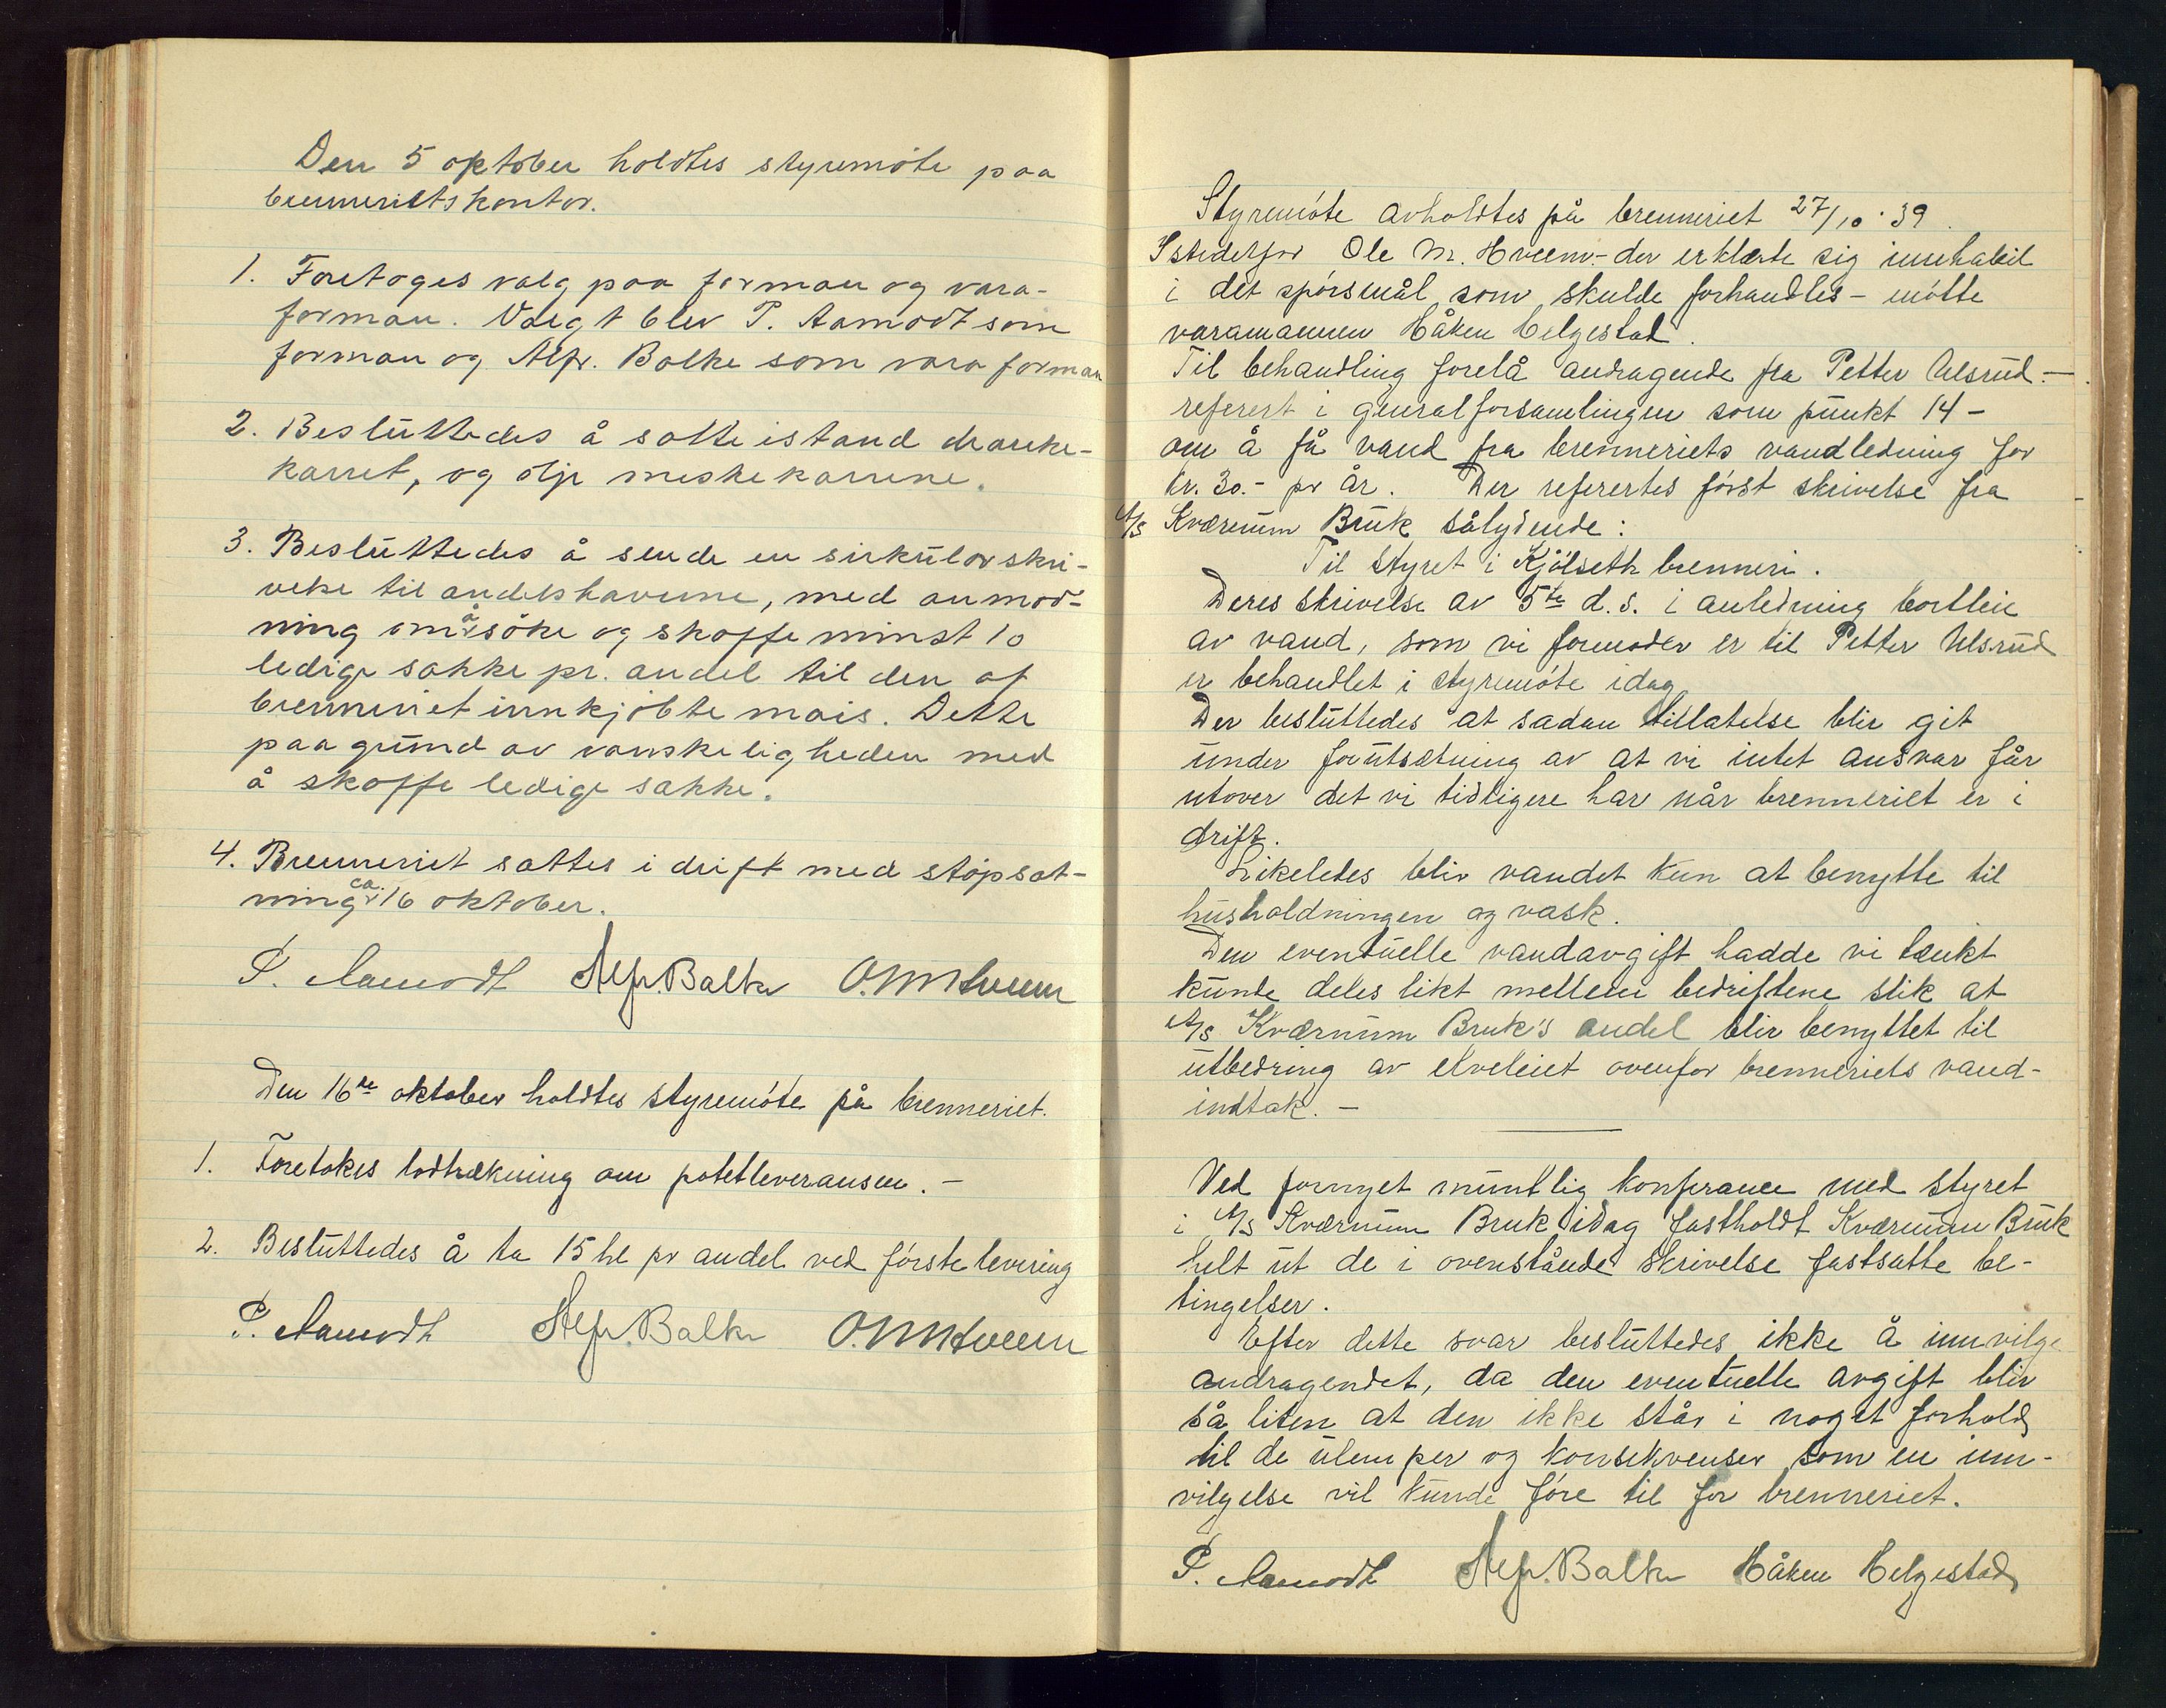 Den 5 oktober holdtes styremöte paa
brenneriets kontor.
1. Foretoges valg paa forman og vara-
forman. Valgt blev P. Aamodt som
forman og Alfr. Balke som vara forman
2. Besluttedes å satte istand dranke-
karret, og olje meske karrene.
3. Besluttedes å sende en sirkularskri-
velse til andelshaverne, med anmod-
ning om å söke og skaffe minst 10
ledige sakke pr. andel til den af
brenneriet innkjöbte mais. Dette
paa grund av vanskeligheden med
å skaffe ledige sakke.
4. Brenneriet sattes i drift med stöpsat-
ning ca. 16 oktober.
P. Aamodt Alfr. Balke O. M. Hveem
Den 16de oktober holdtes styremöte på brenneriet.
1. Foretokes lodtrækning om potetleveransen. -
2. Besluttedes å ta 15 hl pr andel ved förste levering
P. Aamodt Alfr. Balke O. M. Hveem
Styremöte avholdtes på brenneriet 27/10 · 39.
Istedetfor Ole M. Hveem - der erklærte sig innhabil
i det spörsmål som skulde forhandles - mötte
varamannen Håken Helgestad.
Til behandling forelå andragende fra Petter Ulsrud. -
referert i generalforsamlingen som punkt 14 -
om å få vand fra brenneriets vandledning for
kr. 30.- pr år. Der refertes först skrivelse fra
A/S Kværnum Bruk sålydende:
Til Styret i Kjölseth brenneri.
Deres skrivelse av 5te d.s. i anledning bortleie
av vand, som vi formoder er til Petter Ulsrud
er behandlet i styremöte idag.
Der besluttedes at sadan tillatelse blir git
under forutsætning av at vi intet ansvar får
utover det vi tidligere har når brenneriet er i
drift.
Likeledes blir vandet kun at benytte til
husholdningen og vask.
Den eventuelle vandavgift hadde vi tænkt
kunde deles likt mellem bedriftene slik at
A/S Kværnum Bruk's andel blir benyttet til
utbedring av elveleiet ovenfor brenneriets vand-
indtak. -
Ved fornyet muntlig konferance med styret
i A/S Kværnum Bruk idag fastholdt Kværnum Bruk
helt ut de i ovenstående skrivelse fastsatte be-
tingelser.
Efter dette svar besluttedes ikke å innvilge
andragendet, da den eventuelle avgift blir
så liten at den ikke står i noget forhold
til de ulemper og konsekvenser som en inn-
vilgelse vil kunde före til for brenneriet.
P. Aamodt Alfr. Balke Håken Helgestad